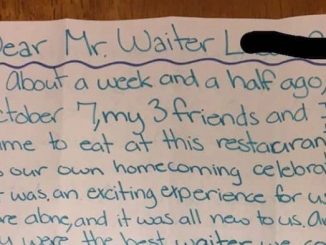 Dear Mr. Waiter L
about a week and a half ago,
ctober 7, my 3 friends and I
me to eat at this restauran
s our own homecoming celebra
t was an exciting experience for us
re alone, and it was all new to us. a
were the best waiter we